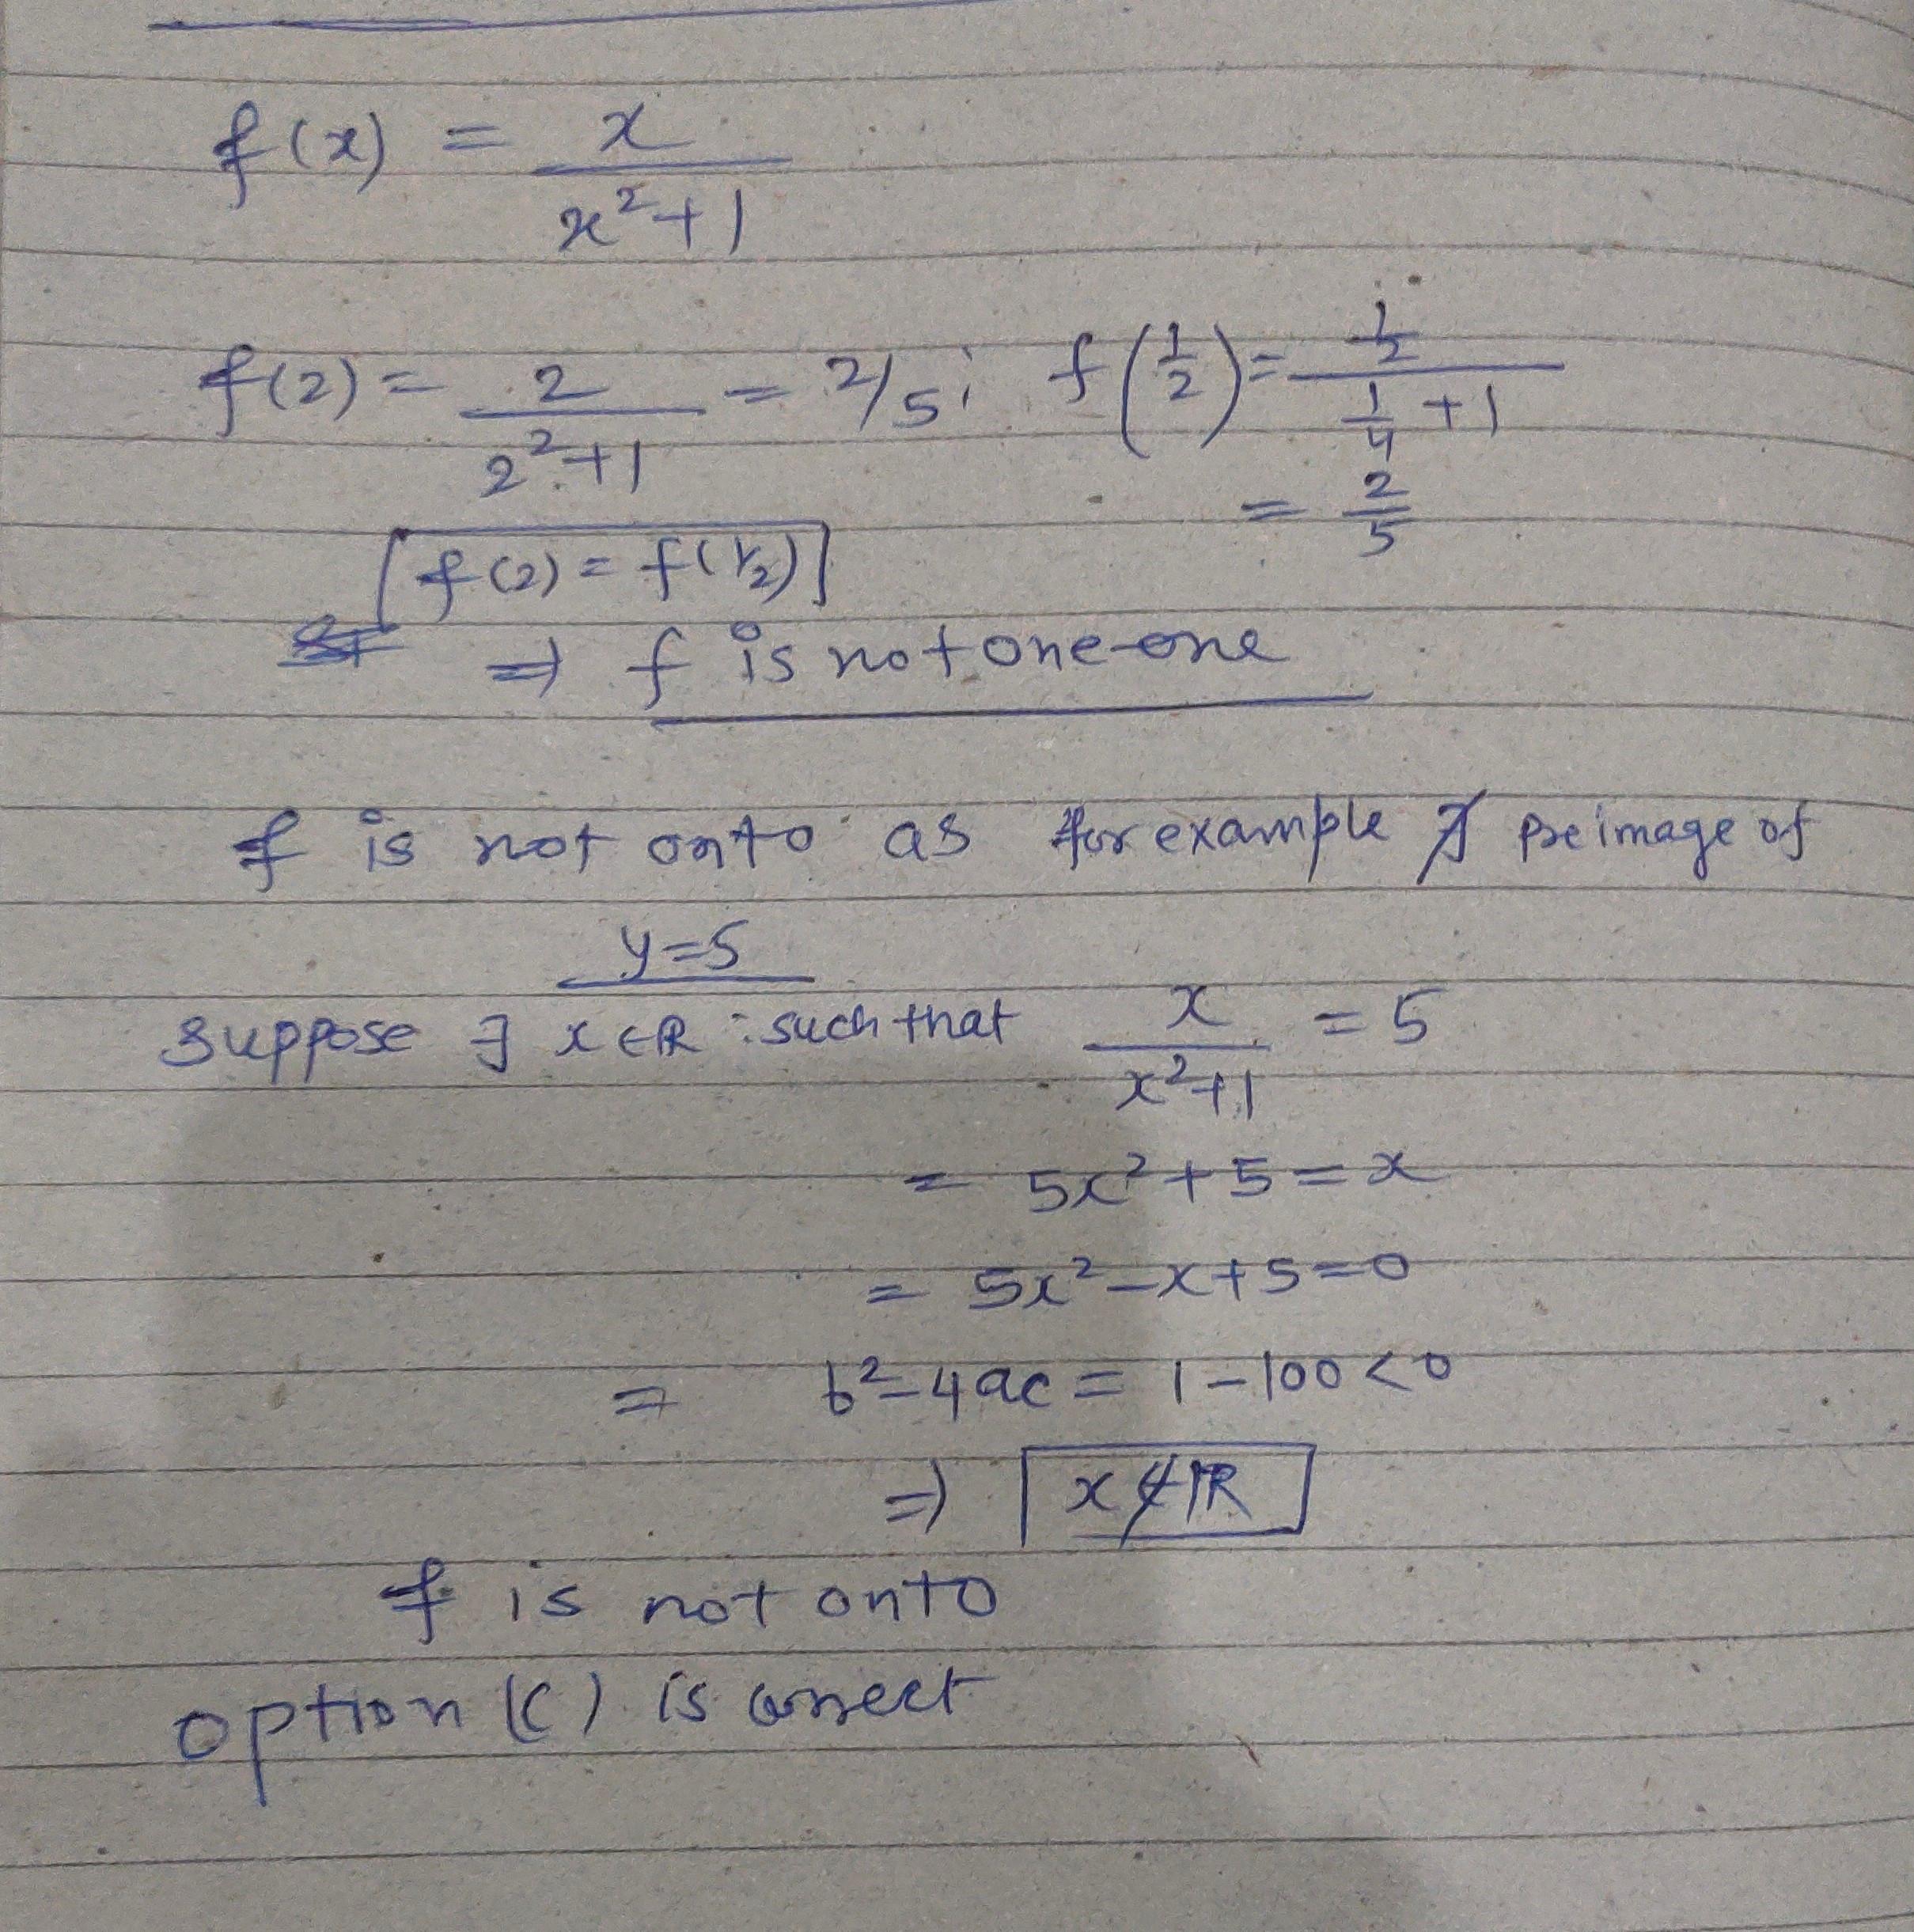 f(x) = x / x²+1
f(2) = 2 / 2²+1 = 2/5 ; f(1/2) = 1/2 / 1/4 + 1
= 2/5
f(2) = f(1/2)
⇒ f is not one-one
f is not onto as for example ∄ preimage of
y=5
suppose ∃ x∈ℝ : such that x / x²+1 = 5
= 5x²+5=x
= 5x²-x+5=0
= b²-4ac = 1-100<0
⇒ x∉ℝ
f is not onto
option (c) is correct